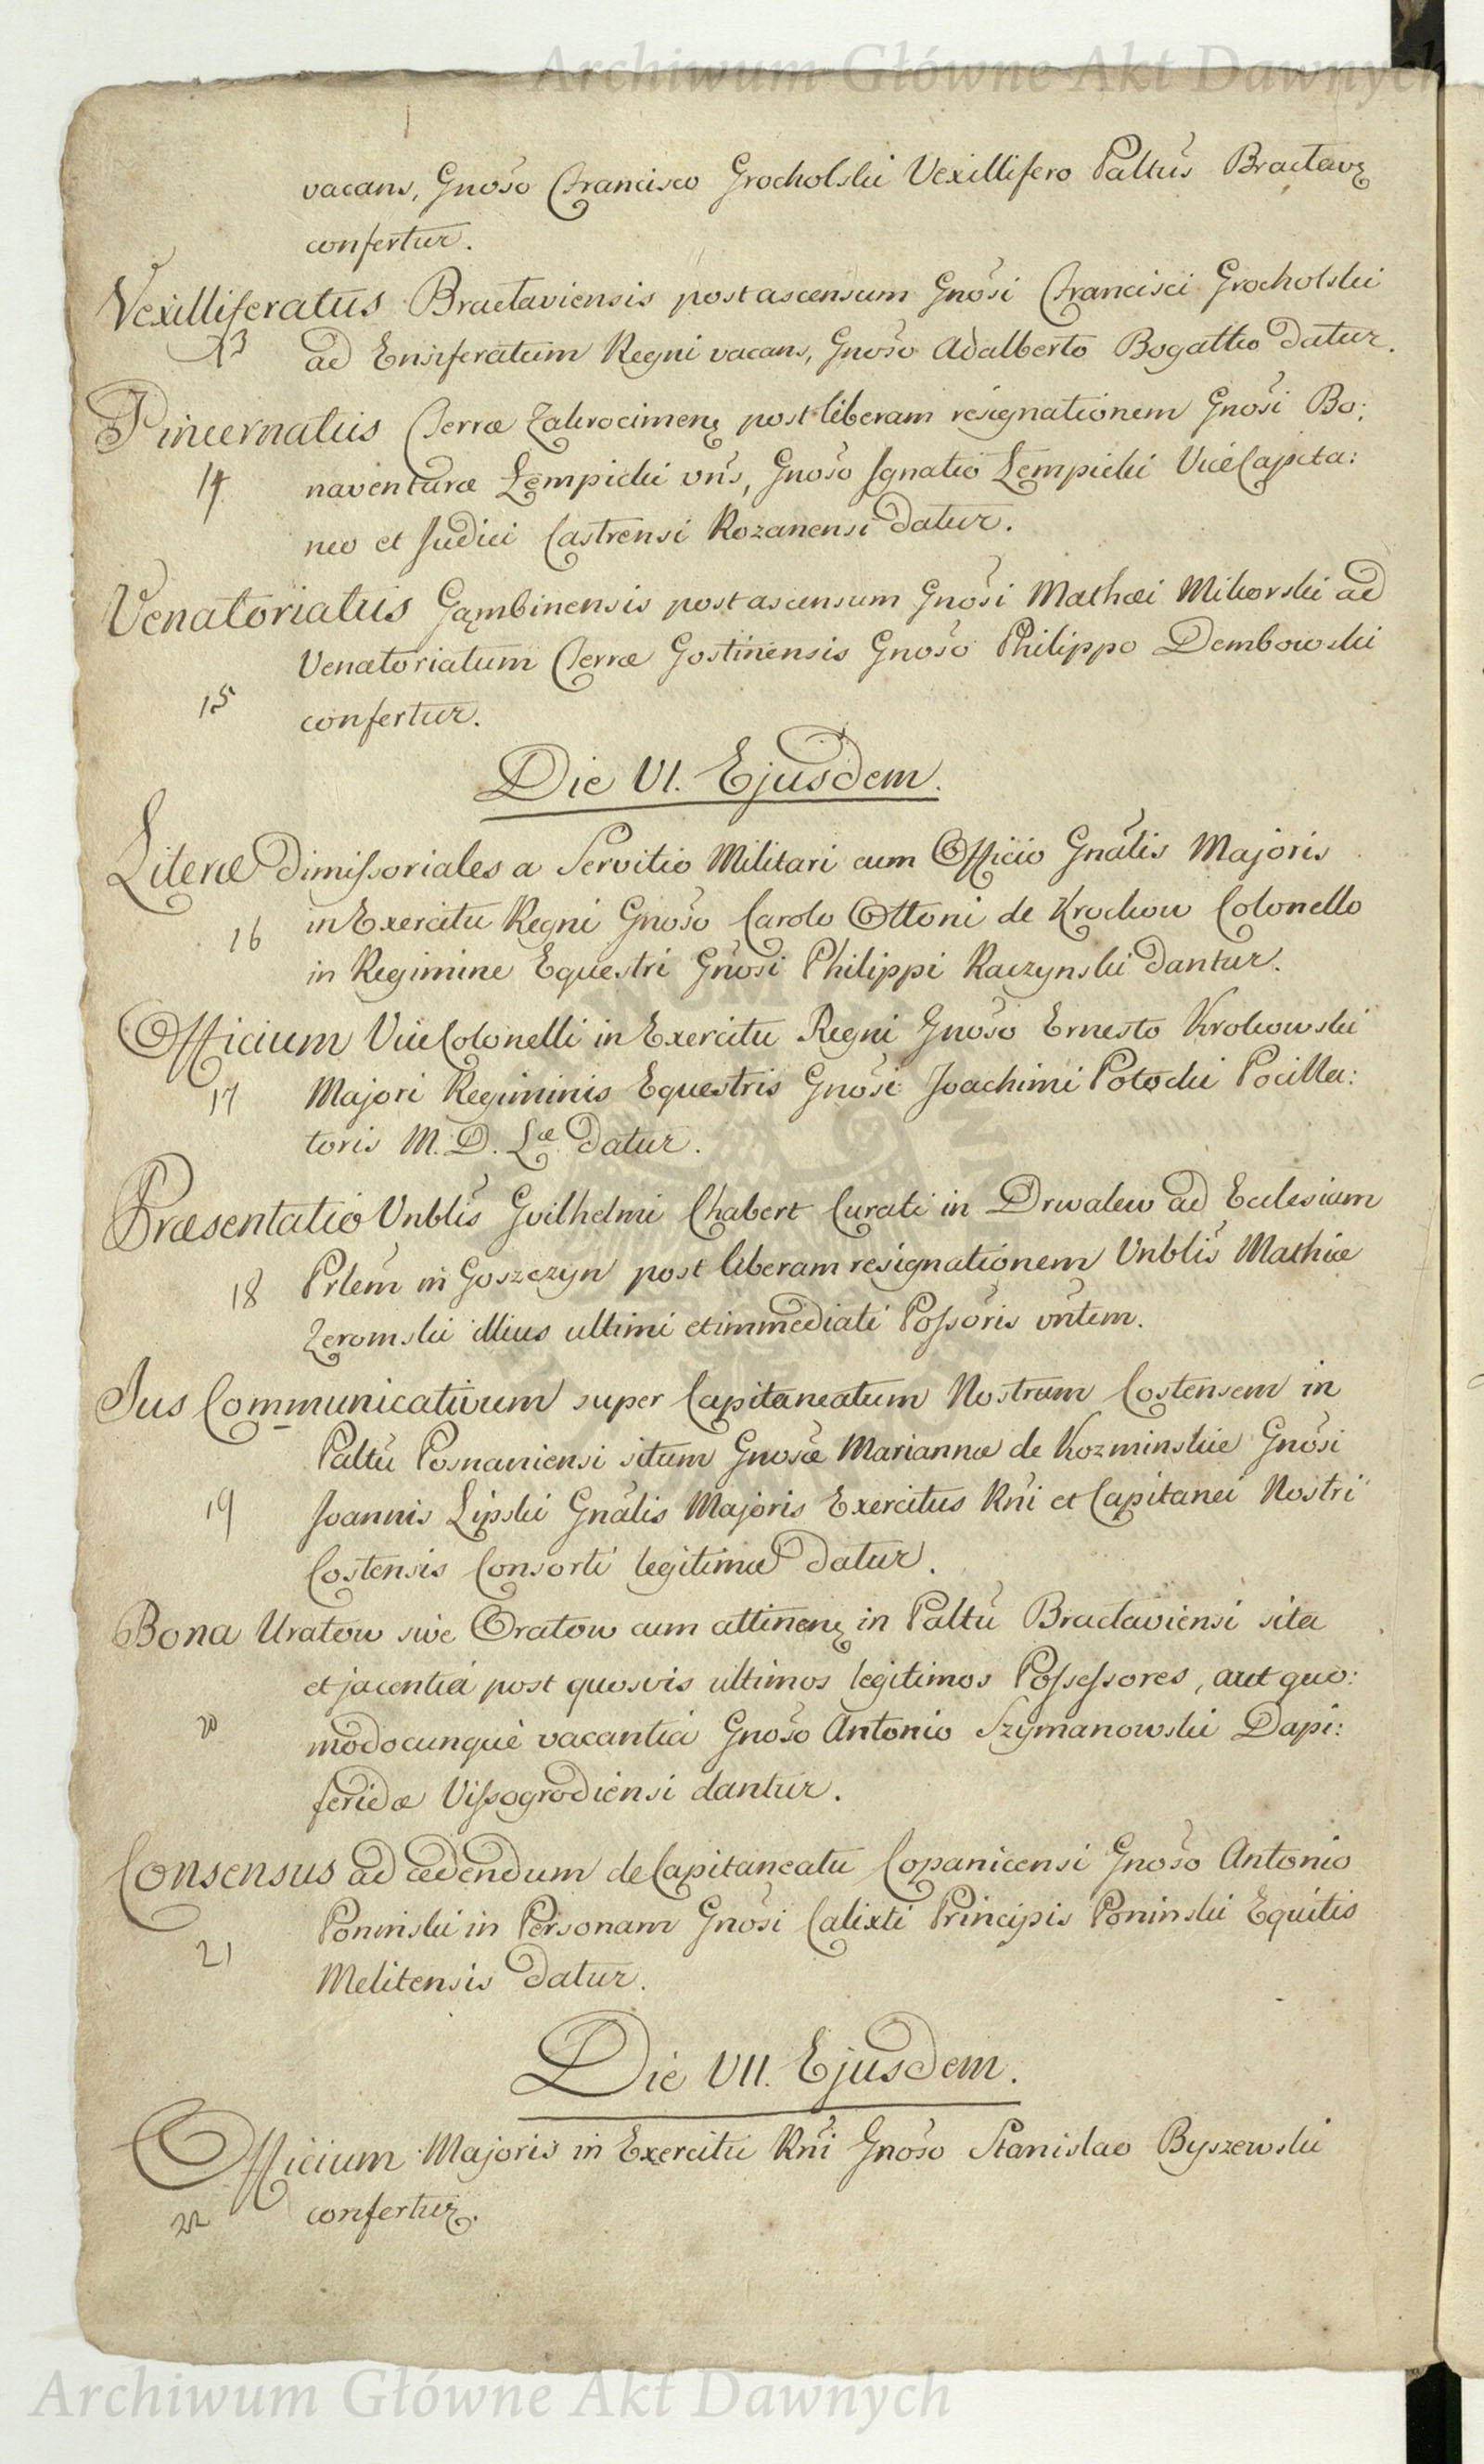 Archiwum Główne Akt Dawnych
vacans, Gnoso Francisco Grocholski Vexillifero Paltus Braclavę
confertur.
Vexilliferatus Braclaviensis post ascensum Gnosi Francisci Grocholski
13 ad Ensiferatum Regni vacans, Gnoso Adalberto Bogatko datur.
Pincernatus Terræ Zakrocimenę post liberam resignationem Gnosi Bo:
14 naventuræ Lempicki vns, Gnoso Ignatio Lempicki ViceCapita:
neo et Judici Castrensi Rozanensi datur.
Venatoriatus Gąmbinensis post ascensum Gnosi Mathæi Mikorski ad
Venatoriatum Terræ Gostinensis Gnoso Philippo Dembowski
15 confertur.
Die VI. Ejusdem.
Literæ dimissoriales a Servitio Militari cum Officio Gnalis Majoris
16 in Exercitu Regni Gnoso Carolo Ottoni de Krockow Colonello
in Regimine Equestri Gnosi Philippi Raczynski dantur.
Officium ViceColonelli in Exercitu Regni Gnoso Ernesto Krokowski
17 Majori Regiminis Equestris Gnosi Joachimi Potocki Pocilla:
toris M. D. Læ datur.
Præsentatio Vnblis Gvilhelmi Chabert Curati in Drwalew ad Ecclesiam
18 Prlem in Goszczyn post liberam resignationem Vnblis Mathiæ
Zeromski illius ultimi et immediati Possoris vntem.
Jus Communicativum super Capitaneatum Nostrum Costensem in
Paltu Posnaniensi situm Gnosæ Mariannæ de Kozminskie Gnosi
19 Joannis Lipski Gnalis Majoris Exercitus Rni et Capitanei Nostri
Costensis Consorti legitimæ datur.
Bona Uratow sive Oratow cum attinenę in Paltu Braclaviensi sita
et jacentia post quosvis ultimos legitimos Possessores, aut quo:
20 modocunque vacantia Gnoso Antonio Szymanowski Dapi:
feridæ Vissogrodiensi dantur.
Consensus ad cedendum de Capitaneatu Copanicensi Gnoso Antonio
Poninski in Personam Gnosi Calixti Principis Poninski Equitis
21 Melitensis datur.
Die VII. Ejusdem.
Officium Majoris in Exercitu Rni Gnoso Stanislao Byszewski
22 confertur.
Archiwum Główne Akt Dawnych